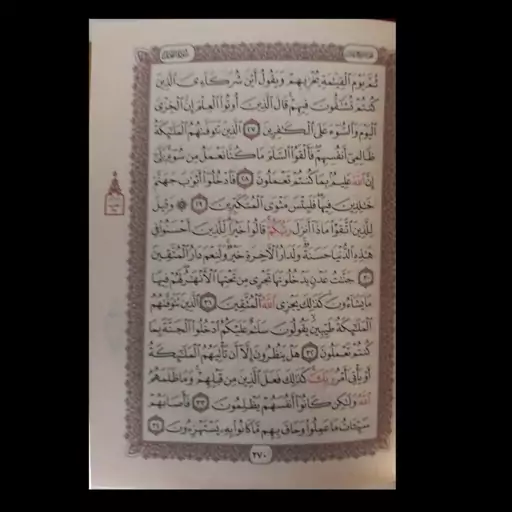 ثُمَّ يَوْمَ ٱلْقِيَٰمَةِ يُخْزِيهِمْ وَيَقُولُ أَيْنَ شُرَكَآءِىَ ٱلَّذِينَ
كُنتُمْ تُشَٰٓقُّونَ فِيهِمْ قَالَ ٱلَّذِينَ أُوتُوا۟ ٱلْعِلْمَ إِنَّ ٱلْخِزْىَ
ٱلْيَوْمَ وَٱلسُّوٓءَ عَلَى ٱلْكَٰفِرِينَ ٢٧ ٱلَّذِينَ تَتَوَفَّىٰهُمُ ٱلْمَلَٰٓئِكَةُ
ظَالِمِىٓ أَنفُسِهِمْ فَأَلْقَوُا۟ ٱلسَّلَمَ مَا كُنَّا نَعْمَلُ مِن سُوٓءٍۭ بَلَىٰٓ
إِنَّ ٱللَّهَ عَلِيمٌۢ بِمَا كُنتُمْ تَعْمَلُونَ ٢٨ فَٱدْخُلُوٓا۟ أَبْوَٰبَ جَهَنَّمَ
خَٰلِدِينَ فِيهَا فَلَبِئْسَ مَثْوَى ٱلْمُتَكَبِّرِينَ ٢٩ ۞ وَقِيلَ
لِلَّذِينَ ٱتَّقَوْا۟ مَاذَآ أَنزَلَ رَبُّكُمْ قَالُوا۟ خَيْرًا لِّلَّذِينَ أَحْسَنُوا۟ فِى
هَٰذِهِ ٱلدُّنْيَا حَسَنَةٌ وَلَدَارُ ٱلْءَاخِرَةِ خَيْرٌ وَلَنِعْمَ دَارُ ٱلْمُتَّقِينَ
٣٠ جَنَّٰتُ عَدْنٍ يَدْخُلُونَهَا تَجْرِى مِن تَحْتِهَا ٱلْأَنْهَٰرُ لَهُمْ فِيهَا
مَا يَشَآءُونَ كَذَٰلِكَ يَجْزِى ٱللَّهُ ٱلْمُتَّقِينَ ٣١ ٱلَّذِينَ تَتَوَفَّىٰهُمُ
ٱلْمَلَٰٓئِكَةُ طَيِّبِينَ يَقُولُونَ سَلَٰمٌ عَلَيْكُمُ ٱدْخُلُوا۟ ٱلْجَنَّةَ بِمَا
كُنتُمْ تَعْمَلُونَ ٣٢ هَلْ يَنظُرُونَ إِلَّآ أَن تَأْتِيَهُمُ ٱلْمَلَٰٓئِكَةُ
أَوْ يَأْتِىَ أَمْرُ رَبِّكَ كَذَٰلِكَ فَعَلَ ٱلَّذِينَ مِن قَبْلِهِمْ وَمَا ظَلَمَهُمُ
ٱللَّهُ وَلَٰكِن كَانُوٓا۟ أَنفُسَهُمْ يَظْلِمُونَ ٣٣ فَأَصَابَهُمْ
سَيِّـَٔاتُ مَا عَمِلُوا۟ وَحَاقَ بِهِم مَّا كَانُوا۟ بِهِۦ يَسْتَهْزِءُونَ ٣٤
٢٧٠